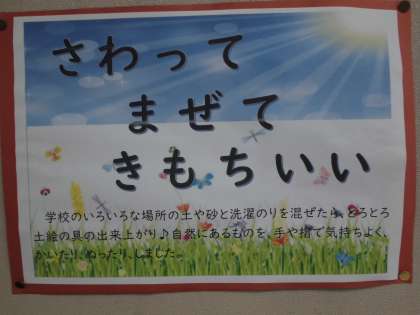 さわって
まぜて
きもちいい
学校のいろいろな場所の土や砂と洗濯のりを混ぜたら、とろとろ
土絵の具の出来上がり♪自然にあるものを、手や指で気持ちよく、
かいたり、ぬったり、しました。